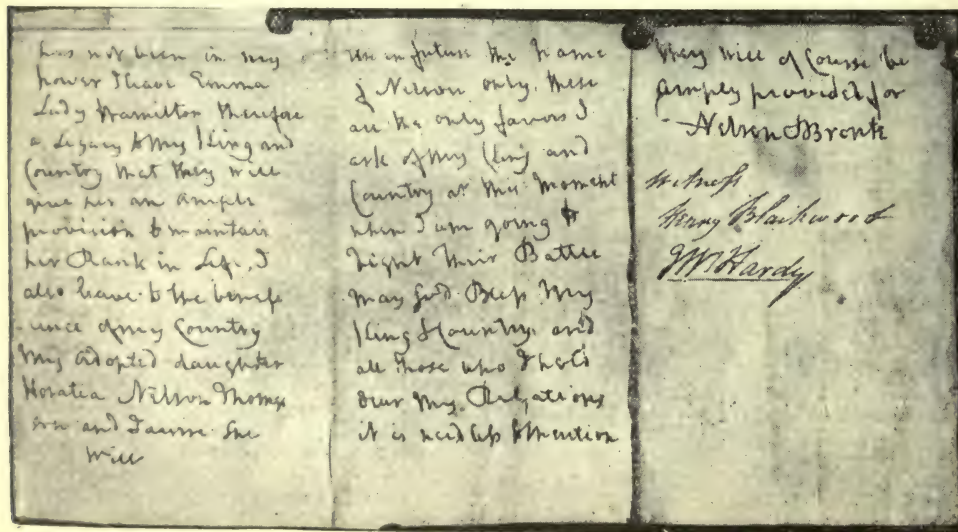 has not been in my
power I leave Emma
Lady Hamilton therefore
a Legacy to my King and
Country that they will
give her an ample
provision to maintain
her Rank in Life, I
also leave to the benefi
-cence of my Country
my adopted daughter
Horatia Nelson Thomps
on and I desire She
Will
use in future the Name
of Nelson only, these
are the only favors I
ask of my King and
Country at this moment
when I am going to
Fight their Battle
May God Bless My
King & Country and
all those who I hold
dear My Relations
it is needless to mention
they will of Course be
amply provided for
Nelson & Bronte
witness
Henry Blackwood
TMHardy